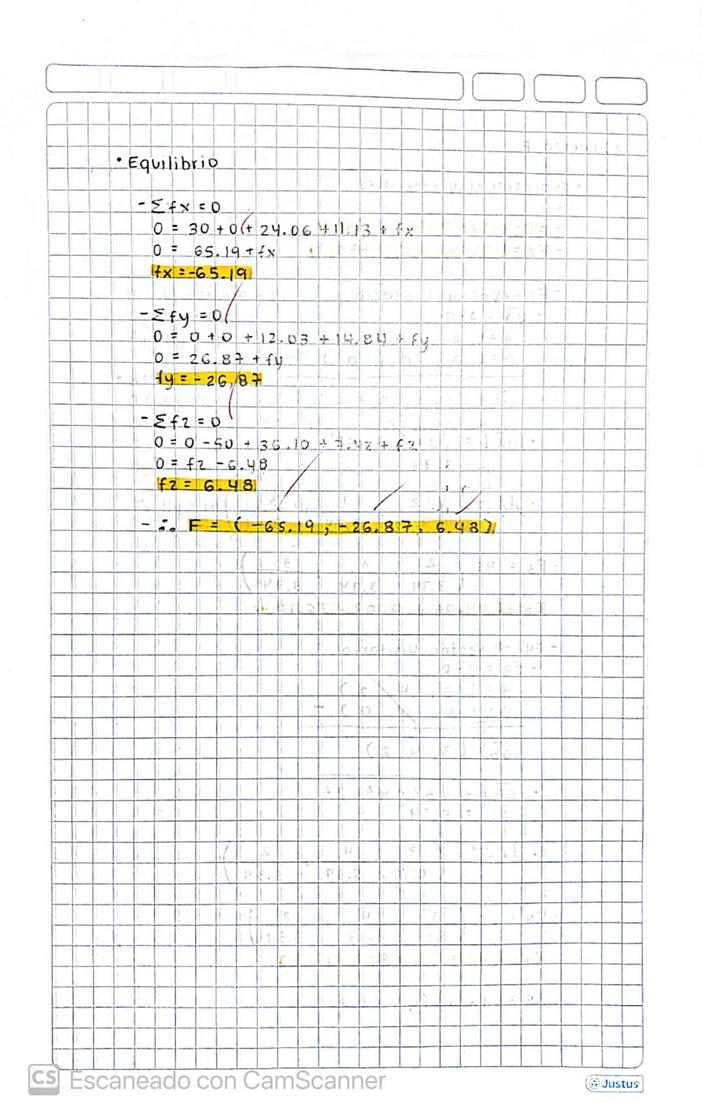 • Equilibrio
- Σfx = 0
0 = 30 + 0 + 24.06 + 11.13 + fx
0 = 65.19 + fx
fx = -65.19
- Σfy = 0
0 = 0 + 0 + 12.03 + 14.84 + fy
0 = 26.87 + fy
fy = -26.87
- Σfz = 0
0 = 0 - 50 + 36.10 + 7.42 + fz
0 = fz - 6.48
fz = 6.48
- ∴ F = (-65.19, -26.87, 6.48)
CS Escaneado con CamScanner
Justus